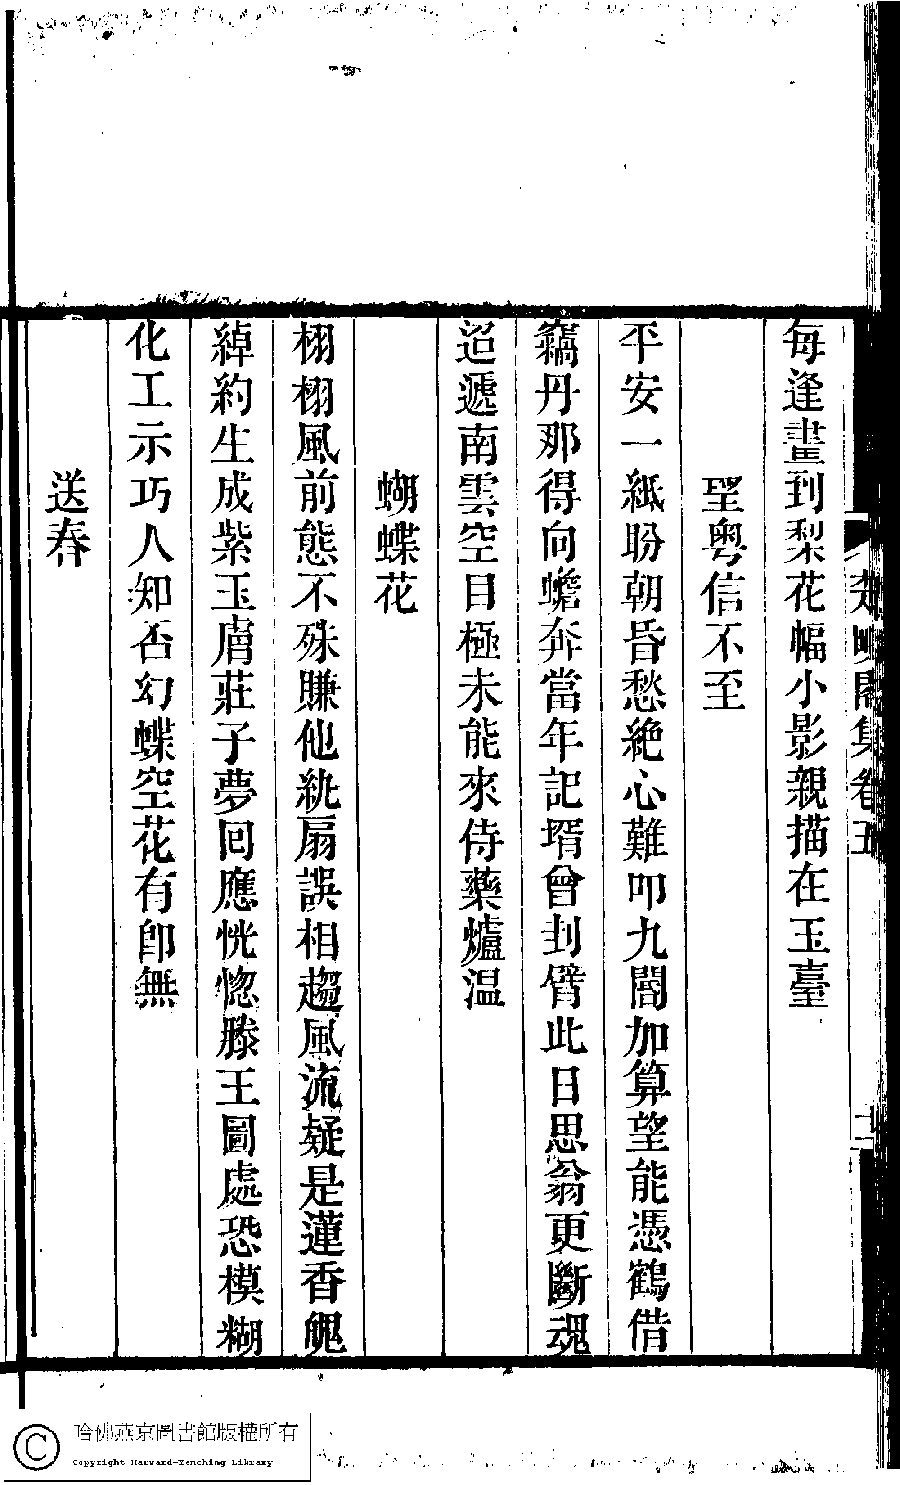 每逢畫到梨花幅小影親描在玉臺
望粵信不至
平安一紙盼朝昏愁絶心難叩九閽加算望能憑鶴借
竊丹那得向蟾奔當年記壻曾刲臂此日思翁更斷魂
迢遞南雲空目極未能來侍藥爐温
蝴蝶花
栩栩風前態不殊賺他紈扇誤相趨風流疑是蓮香魄
綽約生成紫玉膚莊子夢回應恍惚滕王圖處恐模糊
化工示巧人知否幻蝶空花有卽無
送春
閣集卷五
哈佛燕京圖書館版權所有
Copyright Harvard-Yenching Library